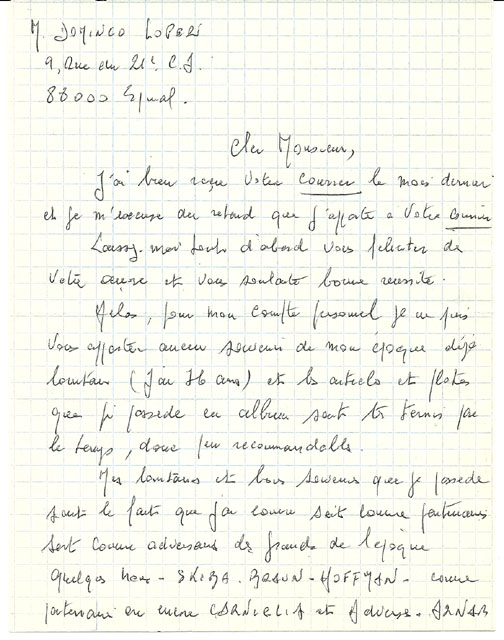 M. DOMINGO LOPERI
9, Rue du 21e C.J.
88000 Epinal.
Cher Monsieur,
J'ai bien reçu votre courrier le mois dernier
et je m'excuse du retard que j'apporte a votre courrier
Laissez-moi tout d'abord vous feliciter de
votre œuvre et vous souhaite bonne reussite.
Helas, pour mon compte personnel je ne puis
vous apporter aucun souvenir de mon epoque déjà
lointain (j'ai 76 ans) et les articles et photos
que je possede en album sont tès ternis par
le temps, donc peu recommandable.
Mes lointains et bons souvenirs que je possede
sont le faite que j'ai connu soit comme partenaires
soit comme adversaires de grands de l'epoque
Quelques Noms - SKIBA. BRAUN - HOFFMAN - comme
partenaire ou encore CARNIELLA et Adverse - ARNAB